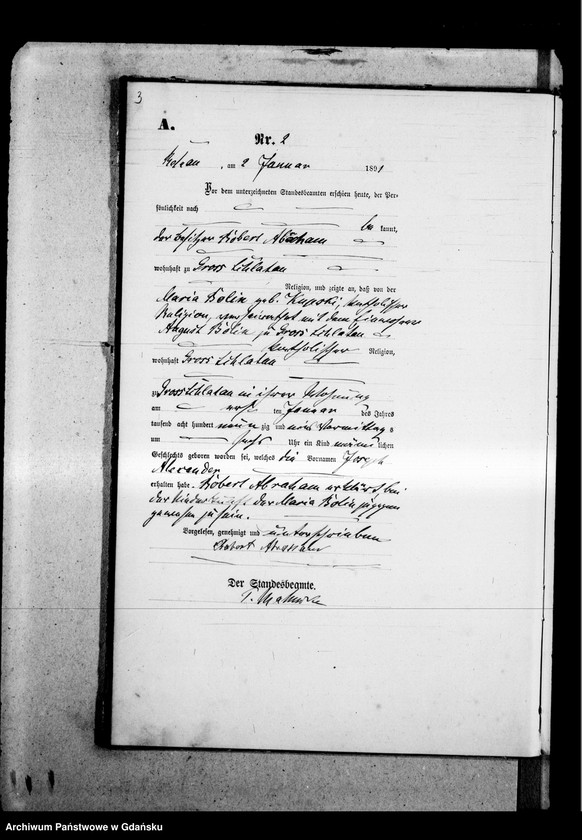 3
A.
Nr. 2
am 2 Januar 1891
Vor dem unterzeichneten Standesbeamten erschien heute, der Per-
sönlichkeit nach
be kannt,
der Besitzer Robert Abraham
wohnhaft zu Gross Lichlatan
Religion, und zeigte an, daß von der
Maria Bolin geb. katholischer
Religion, verheirathet mit dem Einwohner
August Bolin zu Gross Lichlatan
katholischer Religion,
wohnhaft Gross Lichlatan
zu Gross Lichlatan in ihrer Wohnung
am ersten Januar des Jahres
tausend acht hundert neun zig und eins Vormittag s
um sechs Uhr ein Kind männ lichen
Geschlechts geboren worden sei, welches die Vornamen Joseph
Alexander
erhalten habe. Robert Abraham erklärt, bei
der Niederkunft der Maria Bolin zugegen
gewesen zu sein.
Vorgelesen, genehmigt und unterschrieben
Robert Abraham
Der Standesbeamte.
Archiwum Państwowe w Gdańsku